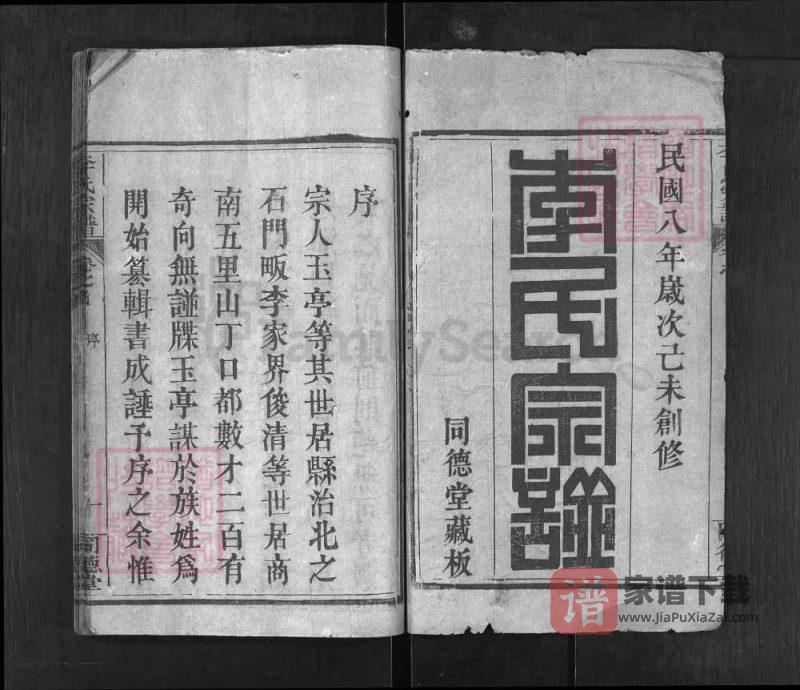 民國八年歲次己未創修
李氏宗譜
同德堂藏板
序
宗人玉亭等其世居縣治北之
石門畈李家界俊清等世居商
南五里山丁口都數才二百有
奇向無譜牒玉亭謀於族姓爲
開始纂輯書成諈予序之余惟
李氏宗譜
序
同德堂
FamilySearch
譜
家谱下载
www.JiaPuXiaZai.com